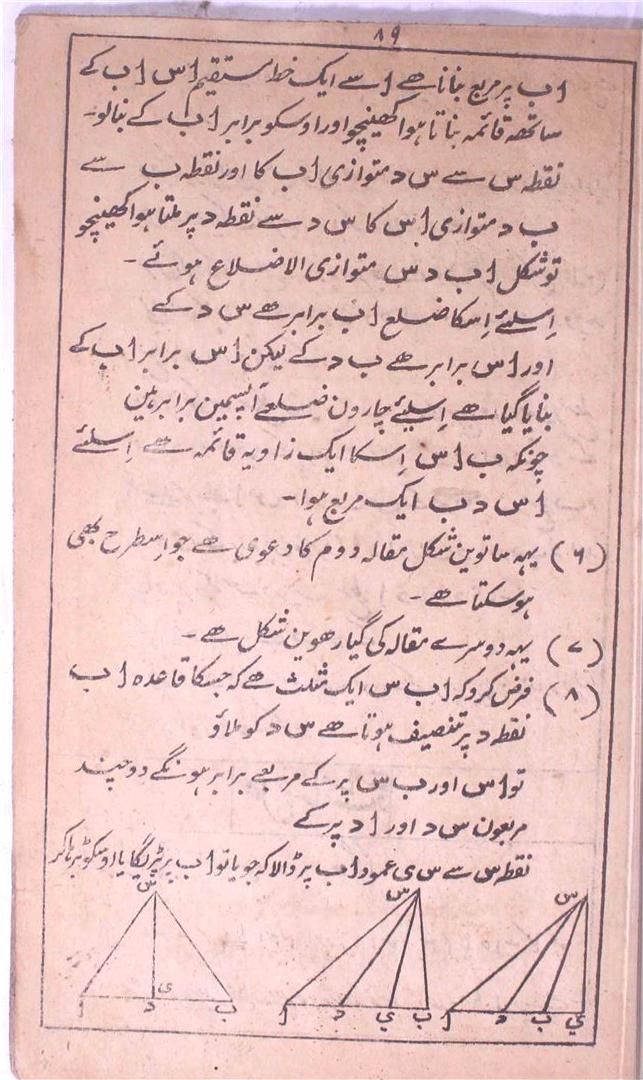 ۸۹
اب پر مربع بنانا هے اسے ایک خط مستقیم اس اب کے
ساتهہ قائمہ بناتا ہوا کهینچو اور اوسکو برابر اب کے بنالو۔
نقطہ س سے س د متوازی اب کا اور نقطہ ب سے
ب د متوازی اس کا س د سے نقطہ د پر ملتا ہوا کهینچو
تو شکل اب د س متوازی الاضلاع ہوئے۔
اِسلئے اِسکا ضلع اب برابر هے س د کے
اور اس برابر هے ب د کے لیکن اس برابر اب کے
بنایا گیا هے اِسلئے چارون ضلعے آپسمین برابر ہین
چونکہ ب اس اِسکا ایک زاویہ قائمہ هے اِسلئے
اس د ب ایک مربع ہوا۔
(۶) یہہ ساتوین شکل مقالہ دوم کا دعوی هے جو اِسطرح بهی
ہوسکتا هے۔
(۷) یہہ دوسرے مقالہ کی گیارهوین شکل هے۔
(۸) فرض کرو کہ اب س ایک مثلث هے کہ جسکا قاعدہ اب
نقطہ د پر تنصیف ہوتا هے س د کو ملاؤ
تو اس اور ب س پر کے مربعے برابر ہونگے دوچند
مربعون س د اور اد پر کے
نقطہ س سے س ی عمود اب پر ڈالا کہ جو یا تو اب پر پڑیگا یا اوسکو بڑہاکر
س س س
ا د ی ب
ا د ي ب
ا د ب ي